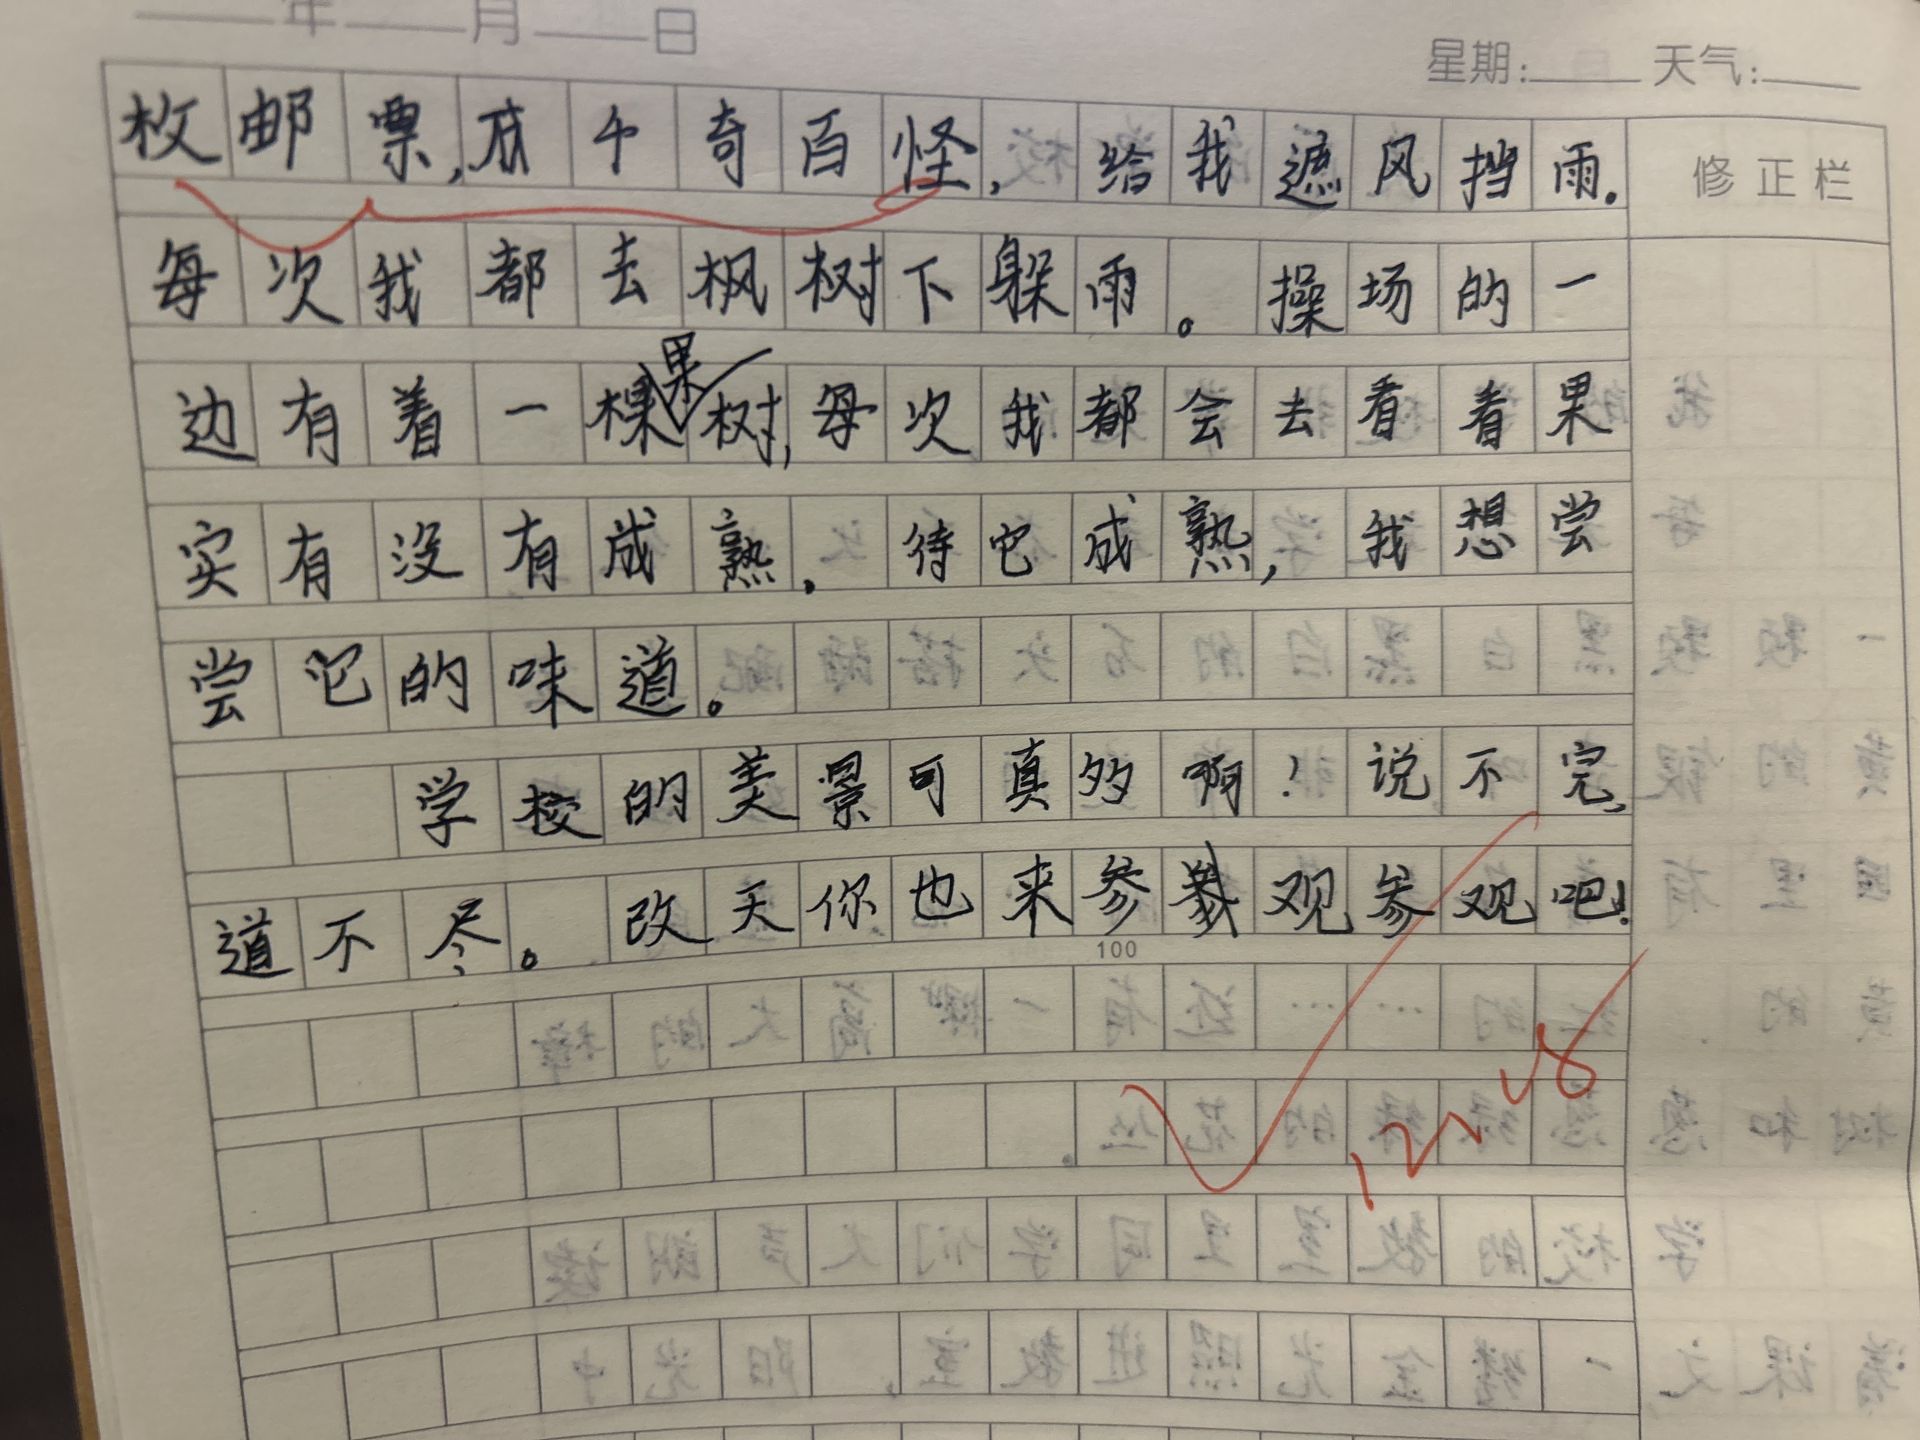 年 月 日
星期: 天气:
枚邮票,底千奇百怪,给我遮风挡雨.
修正栏
每次我都去枫树下躲雨。操场的一
边有着一棵果树,每次我都会去看看果
实有没有成熟.待它成熟,我想尝
尝它的味道。
学校的美景可真多啊!说不完,
道不尽。改天你也来参观参观吧!
100
12.18